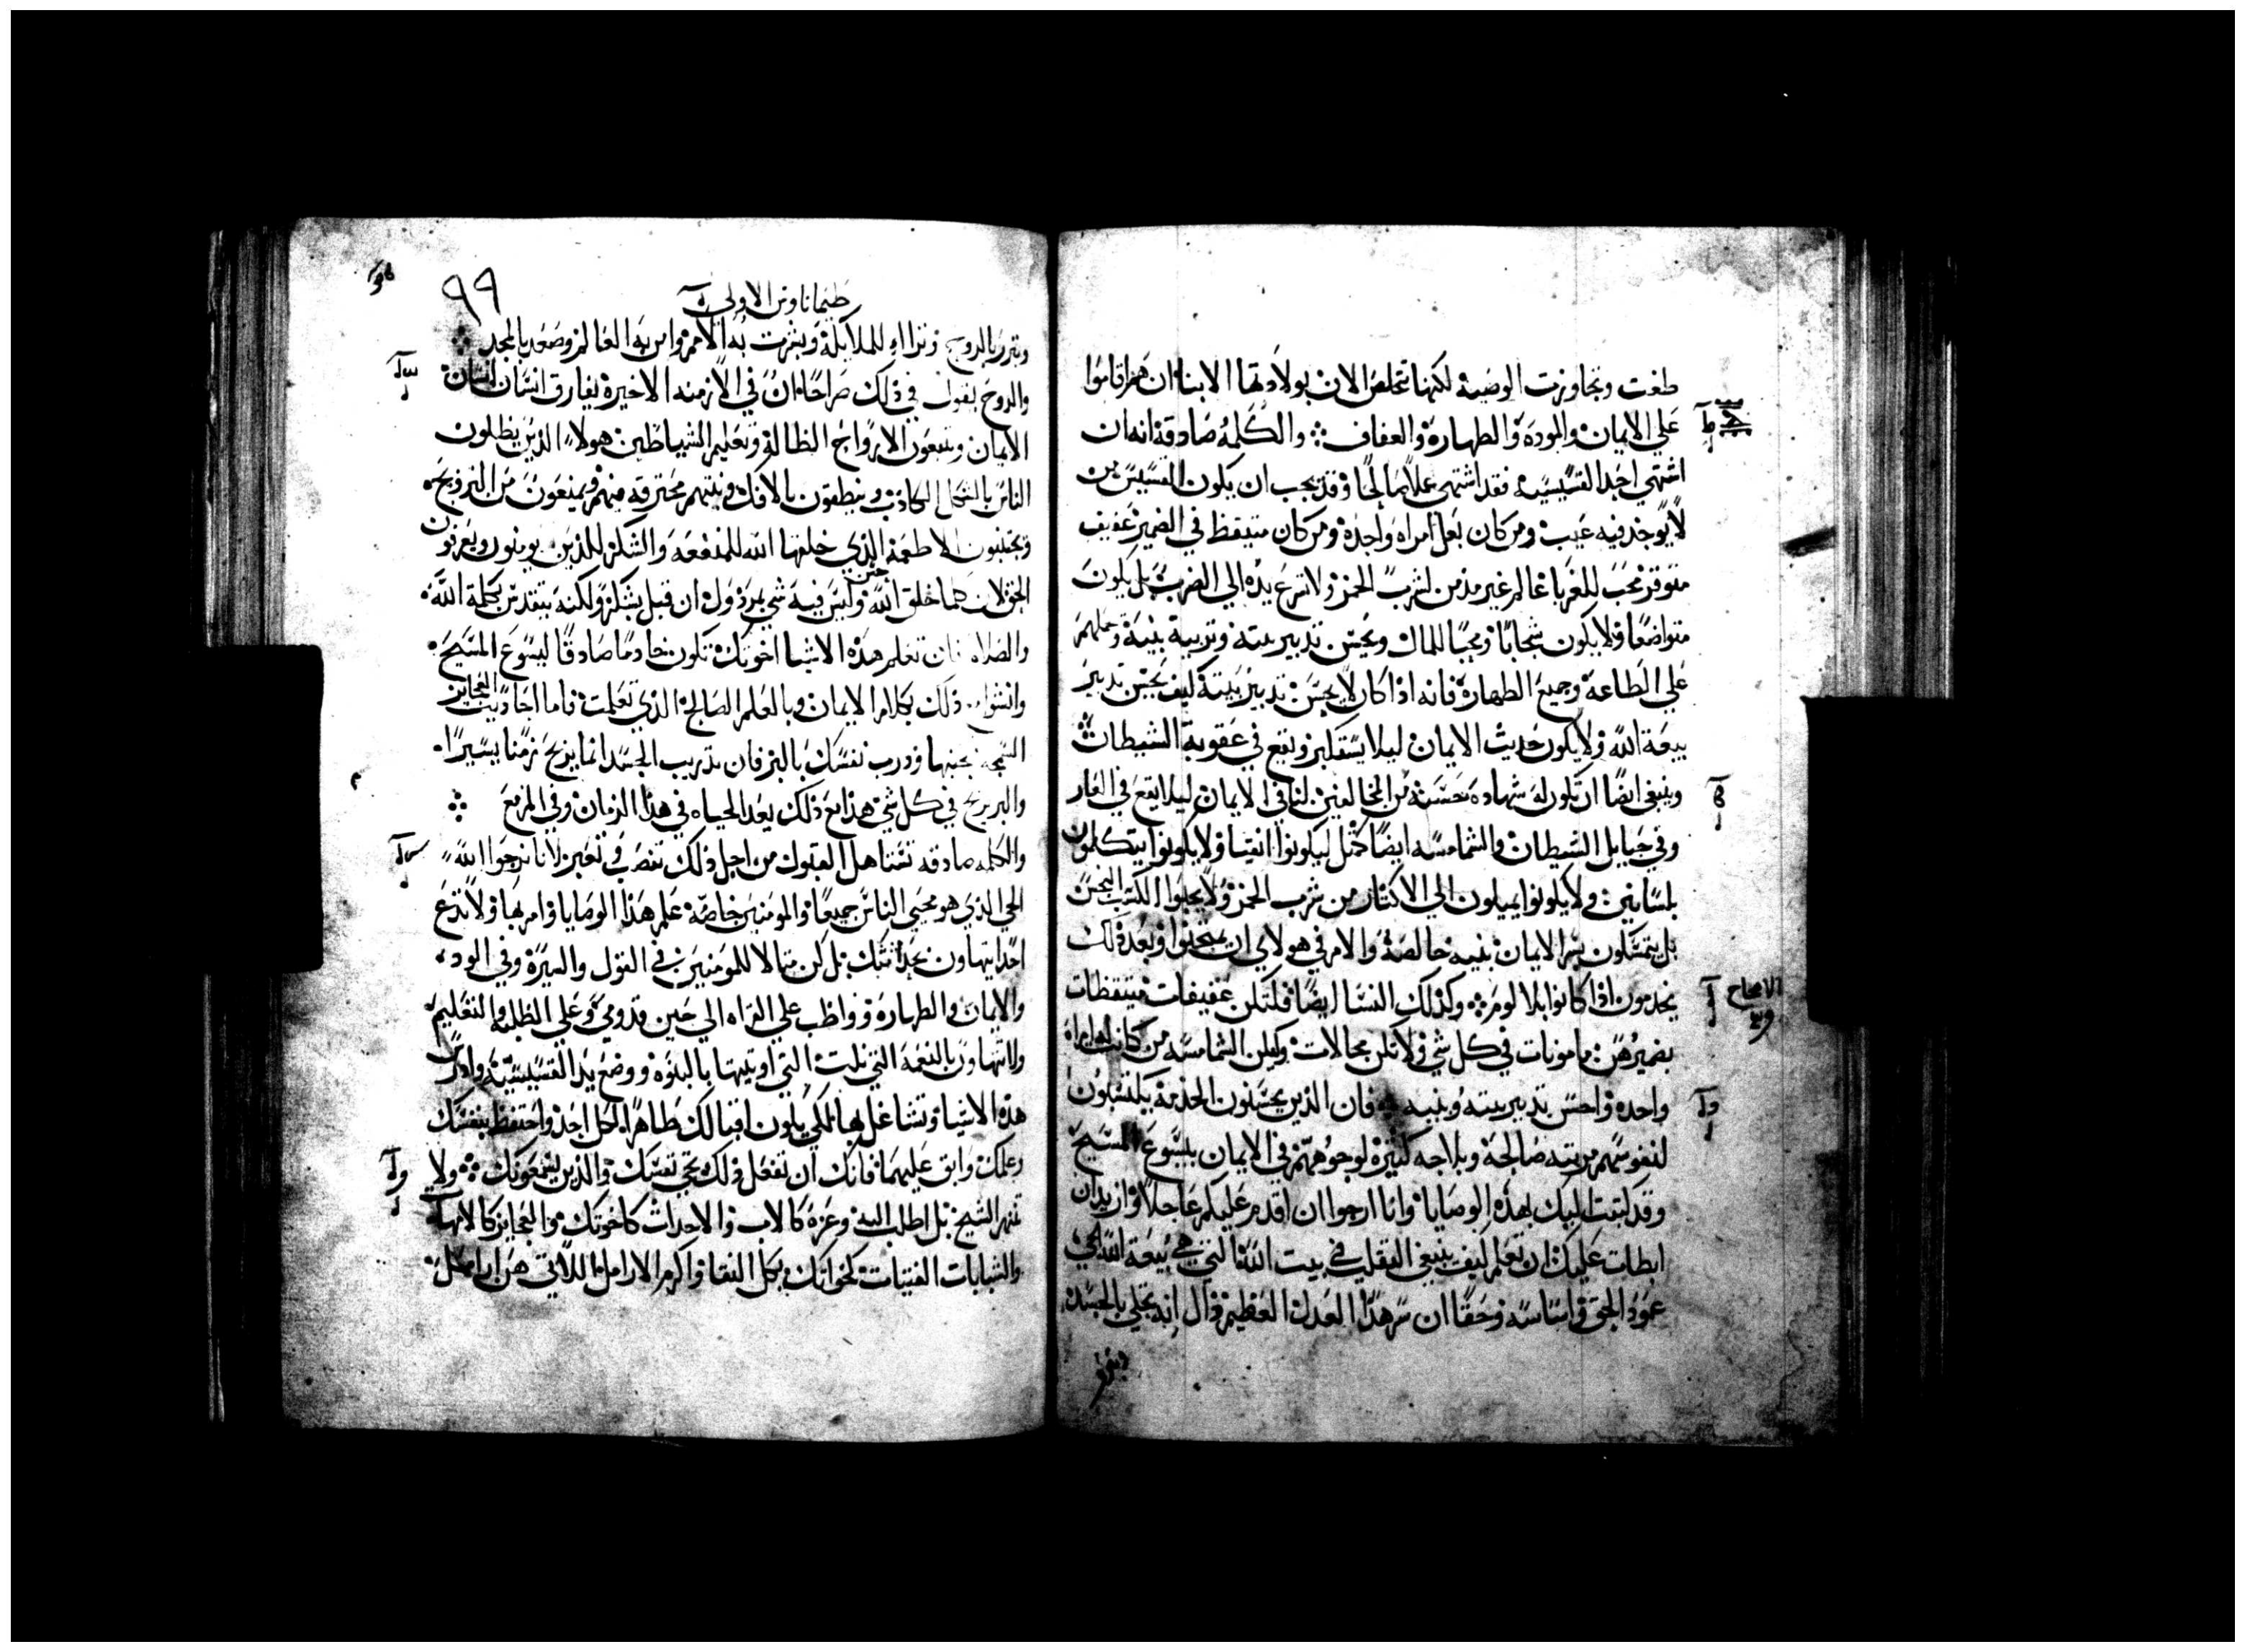 طغت وتجاوزت الوصية لكنها تخلص الان بولادتها الابنا ان هم اقاموا
علي الايمان والمودة والطهارة والعفاف والكلمة صادقة انه ان
اشتهي احد القسيسية فقد اشتهي عملا صالحا وقد يجب ان يكون القسيس من
لا يوجد فيه عيب ومن كان بعل امراة واحدة ومن كان متيقظ في الضمير عفيف
متوقر محب للغربا عالم غير مدمن لشرب الخمر ولا تسرع يده الي الضرب بل يكون
متواضعا ولا يكون شحابا ومحبا للمال ويحسن تدبير بيته وتربية بنيه وحملهم
علي الطاعة وجميع الطهارة فانه اذا كان لا يحسن تدبير بيته كيف يحسن تدبير
بيعة الله ولا يكون حديث الايمان ليلا يستكبر ويقع في عقوبة الشيطان
وينبغي ايضا ان تكون له شهادة حسنة من المخالفين لنا في الايمان ليلا يقع في العار
وفي حبايل الشيطان والشمامسه ايضا كمثل ليكونوا انقيا ولا يكونوا يتكلمون
بلسانين ولا يكونوا يميلون الي الاكثار من شرب الخمر ولا يحبوا الكسب النجس
بل يتمسكون بسر الايمان بنيه خالصة والامر في هولاي ان يمتحنوا وبعد ذلك
يخدمون اذا كانوا بلا لوم وكذلك النسا ايضا فلتكن عفيفات متيقظات
بضميرهن مامونات في كل شي ولا تكن محالات وليكن الشمامسة من كانت له امراة
واحده واحسن تدبير بيته وبنيه فان الذين يحسنون الخدمة يكتسبون
لنفوسهم مرتبه صالحة وبلاجه كثيرة لوجوههم في الايمان بيسوع المسيح
وقد كتبت اليك بهذه الوصايا وانا ارجوا ان اقدم عليكم عاجلا وان
ابطات عليك ان تعلم كيف ينبغي التقلب في بيت الله التي هي بيعة الله الحي
عمود الحق واساسه وحقا ان سر هذا العدل العظيم انه تجلي بالجسد
وتبرر
طيماتاوس الاولي
٩٩
وتبرر بالروح وتراا للملايكة وبشرت به الامم وامن به العالم وصعد بالمجد
والروح يقول في ذلك صراحا ان في الازمنه الاخيرة يفارق انسان انسان
الايمان ويتبعون الارواح الظالة وتعليم الشياطين هولاء الذين يظلون
الناس بالشكل الكاذب وينطقون بالافك ونيتهم محترقه منهم ويمنعون من التزويج
ويجتنبون الاطعمة الذي خلقها الله للمنفعه والشكر للذين يومنون ويعرفون
الحق لان كلما خلق الله حسن وليس فيه شي مردول ان قبل بشكر ولكنه يتقدس بكلمة الله
والصلاه فان تعلم هذه الاشيا اخوتك تكون خادما صادقا ليسوع المسيح
ذلك بكلام الايمان وبالعلم الصالح الذي تعلمت فاما احاديث العجايز
السمجه تجنبها ودرب نفسك بالبر فان تدريب الجسد انما يربح زمنا يسيرا
والبر يربح في كل شي هذا مع ذلك يعد الحياه في هذا الزمان وفي المزمع
والكلمه صادقه تستاهل القبول من اجل ذلك ننصب في نعير لانا نرجوا الله
الحي الذي هو محيي الناس جميعا والمومنين خاصة علم هذا الوصايا وامر بها ولا تدع
احدا يتهاون بحداثتك بل كن مثالا للمومنين في القول والسيرة وفي الود
والايمان والطهارة وواظب علي القراه الي حين قدومي وعلي الطلبه والتعليم
ولا تتهاون بالنعمة التي نلت التي اوتيتها بالنبوه ووضع يد القسيسيه وادرس
هذه الاشيا وتشاغل بها لكي يكون اقبالك ظاهرا لكل احد واحتفظ بنفسك
وعلمك وابق عليهما فانك ان تفعل ذلك تحي نفسك والذين يسمعونك ولا
تنهر الشيخ بل اطلب اليه وعزه كالاب والاحداث كاخوتك والعجايز كالامهات
والشابات الفتيات كخواتك بكل النقا واكرم الارامل اللاتي هن ارامل